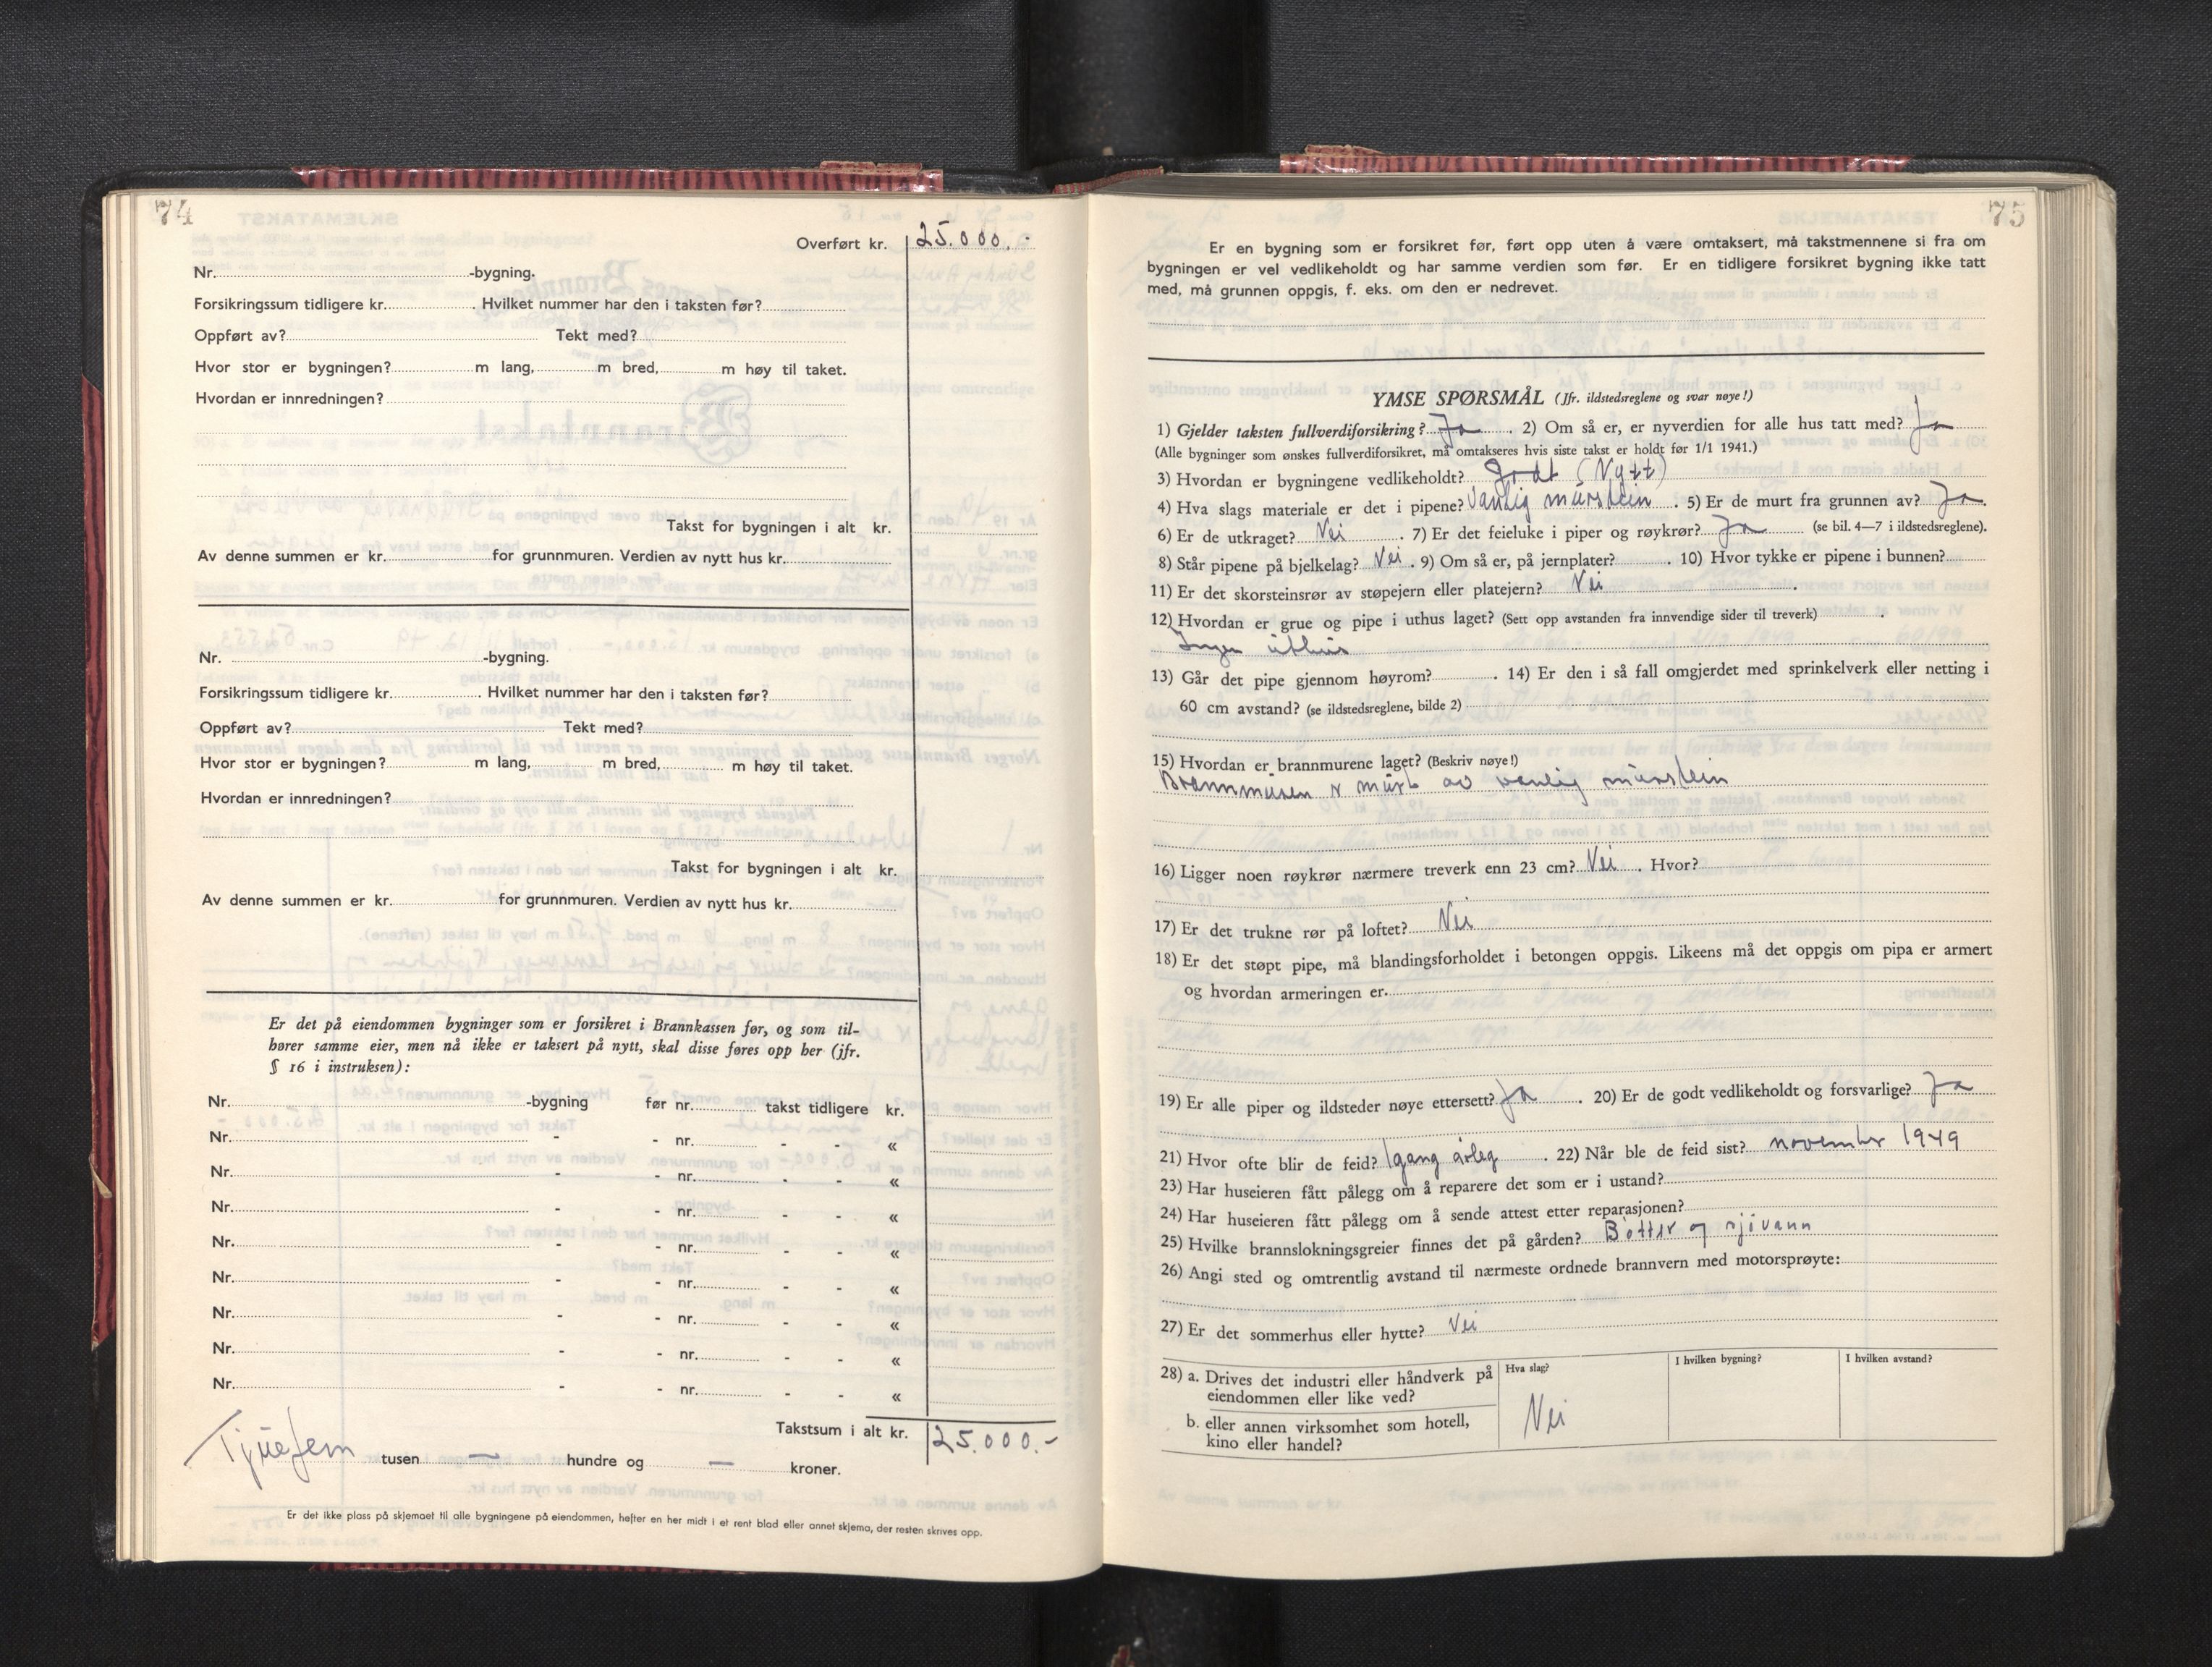 74
Overført kr. 25.000.-
Nr. -bygning.
Forsikringssum tidligere kr. . Hvilket nummer har den i taksten før?
Oppført av? Tekt med?
Hvor stor er bygningen? m lang, m bred, m høy til taket.
Hvordan er innredningen?
Takst for bygningen i alt kr.
Av denne summen er kr. for grunnmuren. Verdien av nytt hus kr.
Nr. -bygning.
Forsikringssum tidligere kr. . Hvilket nummer har den i taksten før?
Oppført av? Tekt med?
Hvor stor er bygningen? m lang, m bred, m høy til taket.
Hvordan er innredningen?
Takst for bygningen i alt kr.
Av denne summen er kr. for grunnmuren. Verdien av nytt hus kr.
Er det på eiendommen bygninger som er forsikret i Brannkassen før, og som til-
hører samme eier, men nå ikke er taksert på nytt, skal disse føres opp her (jfr.
§ 16 i instruksen):
Nr. -bygning før nr. takst tidligere kr.
Nr. - - nr. - - «
Nr. - - nr. - - «
Nr. - - nr. - - «
Nr. - - nr. - - «
Nr. - - nr. - - «
Nr. - - nr. - - «
Nr. - - nr. - - «
Nr. - - nr. - - «
Takstsum i alt kr. 25.000.-
Tjuefem tusen — hundre og — kroner.
Er det ikke plass på skjemaet til alle bygningene på eiendommen, hefter en her midt i et rent blad eller annet skjema, der resten skrives opp.
75
Er en bygning som er forsikret før, ført opp uten å være omtaksert, må takstmennene si fra om
bygningen er vel vedlikeholdt og har samme verdien som før. Er en tidligere forsikret bygning ikke tatt
med, må grunnen oppgis, f. eks. om den er nedrevet.
YMSE SPØRSMÅL (Jfr. ildstedsreglene og svar nøye!)
1) Gjelder taksten fullverdiforsikring? Ja . 2) Om så er, er nyverdien for alle hus tatt med? Ja
(Alle bygninger som ønskes fullverdiforsikret, må omtakseres hvis siste takst er holdt før 1/1 1941.)
3) Hvordan er bygningene vedlikeholdt? Godt (Nytt)
4) Hva slags materiale er det i pipene? Vanlig murstein . 5) Er de murt fra grunnen av? Ja.
6) Er de utkraget? Nei . 7) Er det feieluke i piper og røykrør? Ja (se bil. 4—7 i ildstedsreglene).
8) Står pipene på bjelkelag? Nei . 9) Om så er, på jernplater? . 10) Hvor tykke er pipene i bunnen?
11) Er det skorsteinsrør av støpejern eller platejern? Nei .
12) Hvordan er grue og pipe i uthus laget? (Sett opp avstanden fra innvendige sider til treverk) .
Ingen uthus
13) Går det pipe gjennom høyrom? . 14) Er den i så fall omgjerdet med sprinkelverk eller netting i
60 cm avstand? (se ildstedsreglene, bilde 2)
15) Hvordan er brannmurene laget? (Beskriv nøye!)
Brannmuren er murt av vanlig murstein
16) Ligger noen røykrør nærmere treverk enn 23 cm? Nei . Hvor?
17) Er det trukne rør på loftet? Nei
18) Er det støpt pipe, må blandingsforholdet i betongen oppgis. Likeens må det oppgis om pipa er armert
og hvordan armeringen er.
19) Er alle piper og ildsteder nøye ettersett? Ja . 20) Er de godt vedlikeholdt og forsvarlige? Ja
21) Hvor ofte blir de feid? 1 gang årleg . 22) Når ble de feid sist? november 1949
23) Har huseieren fått pålegg om å reparere det som er i ustand?
24) Har huseieren fått pålegg om å sende attest etter reparasjonen?
25) Hvilke brannslokningsgreier finnes det på gården? Bøtter og sjøvann
26) Angi sted og omtrentlig avstand til nærmeste ordnede brannvern med motorsprøyte:
27) Er det sommerhus eller hytte? Nei
28) a. Drives det industri eller håndverk på
eiendommen eller like ved?
b. eller annen virksomhet som hotell,
kino eller handel?
Hva slag?
Nei
I hvilken bygning?
I hvilken avstand?